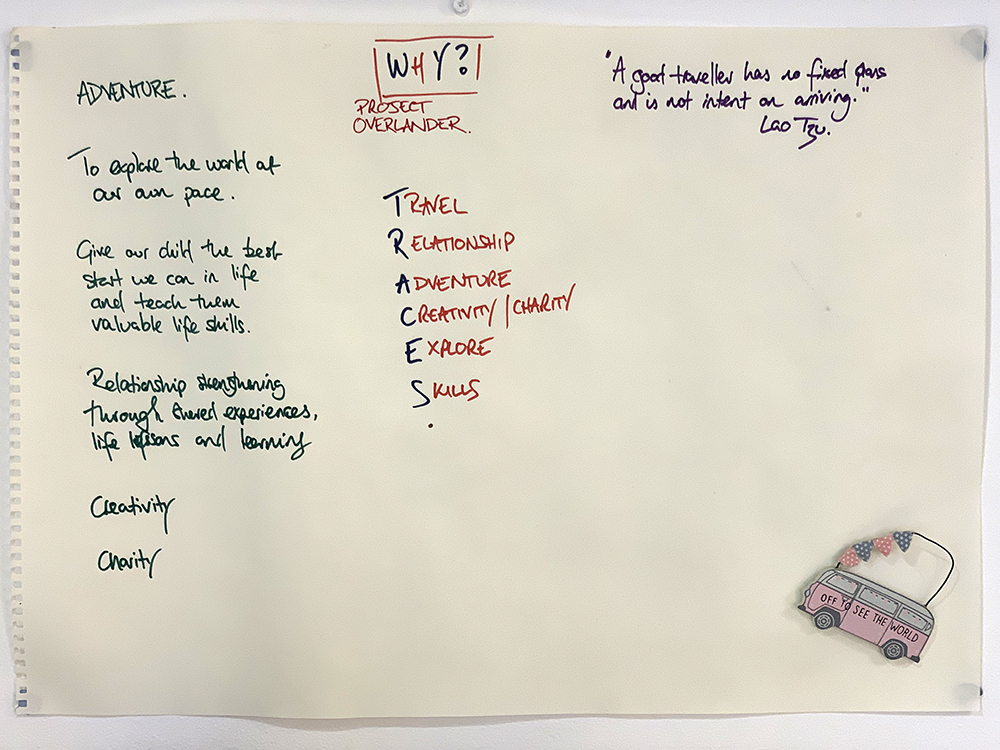 ADVENTURE.
To explore the world at
our own pace.
Give our child the best
start we can in life
and teach them
valuable life skills.
Relationship strengthening
through shared experiences,
life lessons and learning
Creativity
Charity
WHY?
PROJECT
OVERLANDER.
TRAVEL
RELATIONSHIP
ADVENTURE
CREATIVITY / CHARITY
EXPLORE
SKILLS
"A good traveller has no fixed plans
and is not intent on arriving."
Lao Tzu.
OFF TO SEE THE WORLD